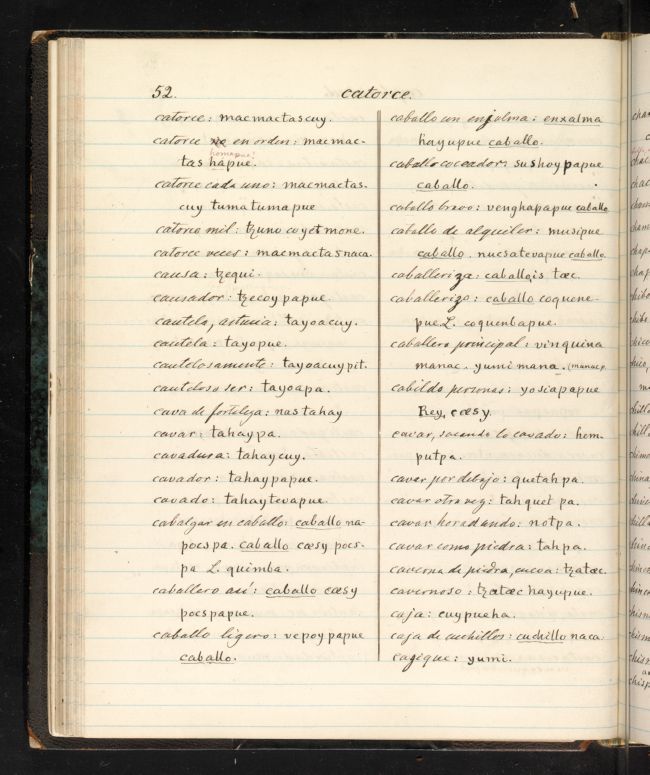 52.
catorce.
catorce: macmactascuy.
catorce en orden: macmac-
tas hapue.
catorce cada uno: macmactas-
cuy tumatumapue
catorce mil: tzuno coyetmone.
catorce veces: macmactasnaca.
causa: tzequi.
causador: tzecoypapue.
cautela, astucia: tayoacuy.
cautela: tayopue.
cautelosamente: tayoacuypit.
cauteloso ser: tayoapa.
cava de fortaleza: nastahay
cavar: tahaypa.
cavadura: tahaycuy.
cavador: tahaypapue.
cavado: tahaytevapue.
cabalgar en caballo: caballo na-
pocspa. caballo cœsy pocs-
pa L. quimba.
caballero asi: caballo cœsy
pocspapue.
caballo ligero: vepoypapue
caballo.
caballo con enjalma: enxalma
hayupue caballo.
caballo coceador: sushoypapue
caballo.
caballo bravo: venghapapue caballo
caballo de alquiler: musipue
caballo. nucsatevapue caballo.
caballeriza: caballois tœc.
caballerizo: caballo coquene-
pue L. coquenbapue.
caballero principal: vinquina
manac. yumi mana. (manac).
cabildo personas: yosciapapue
Rey, cœsy.
cavar, sacando lo cavado: hom-
putpa.
cavar por debajo: quetahpa.
cavar otra vez: tahquetpa.
cavar horadando: notpa.
cavar como piedra: tahpa.
caverna de piedra, cueva: tzatœc.
cavernoso: tzatœc hayupue.
caja: cuypueha.
caja de cuchillos: cuchillo naca.
cazique: yumi.